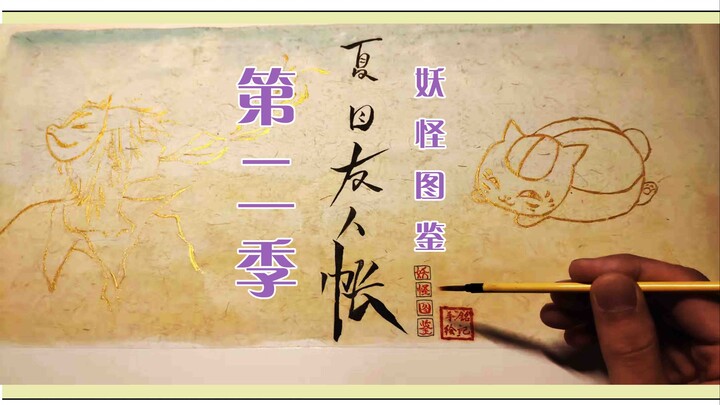 第二季
夏目友人帳
妖怪图鉴
妖怪图鉴